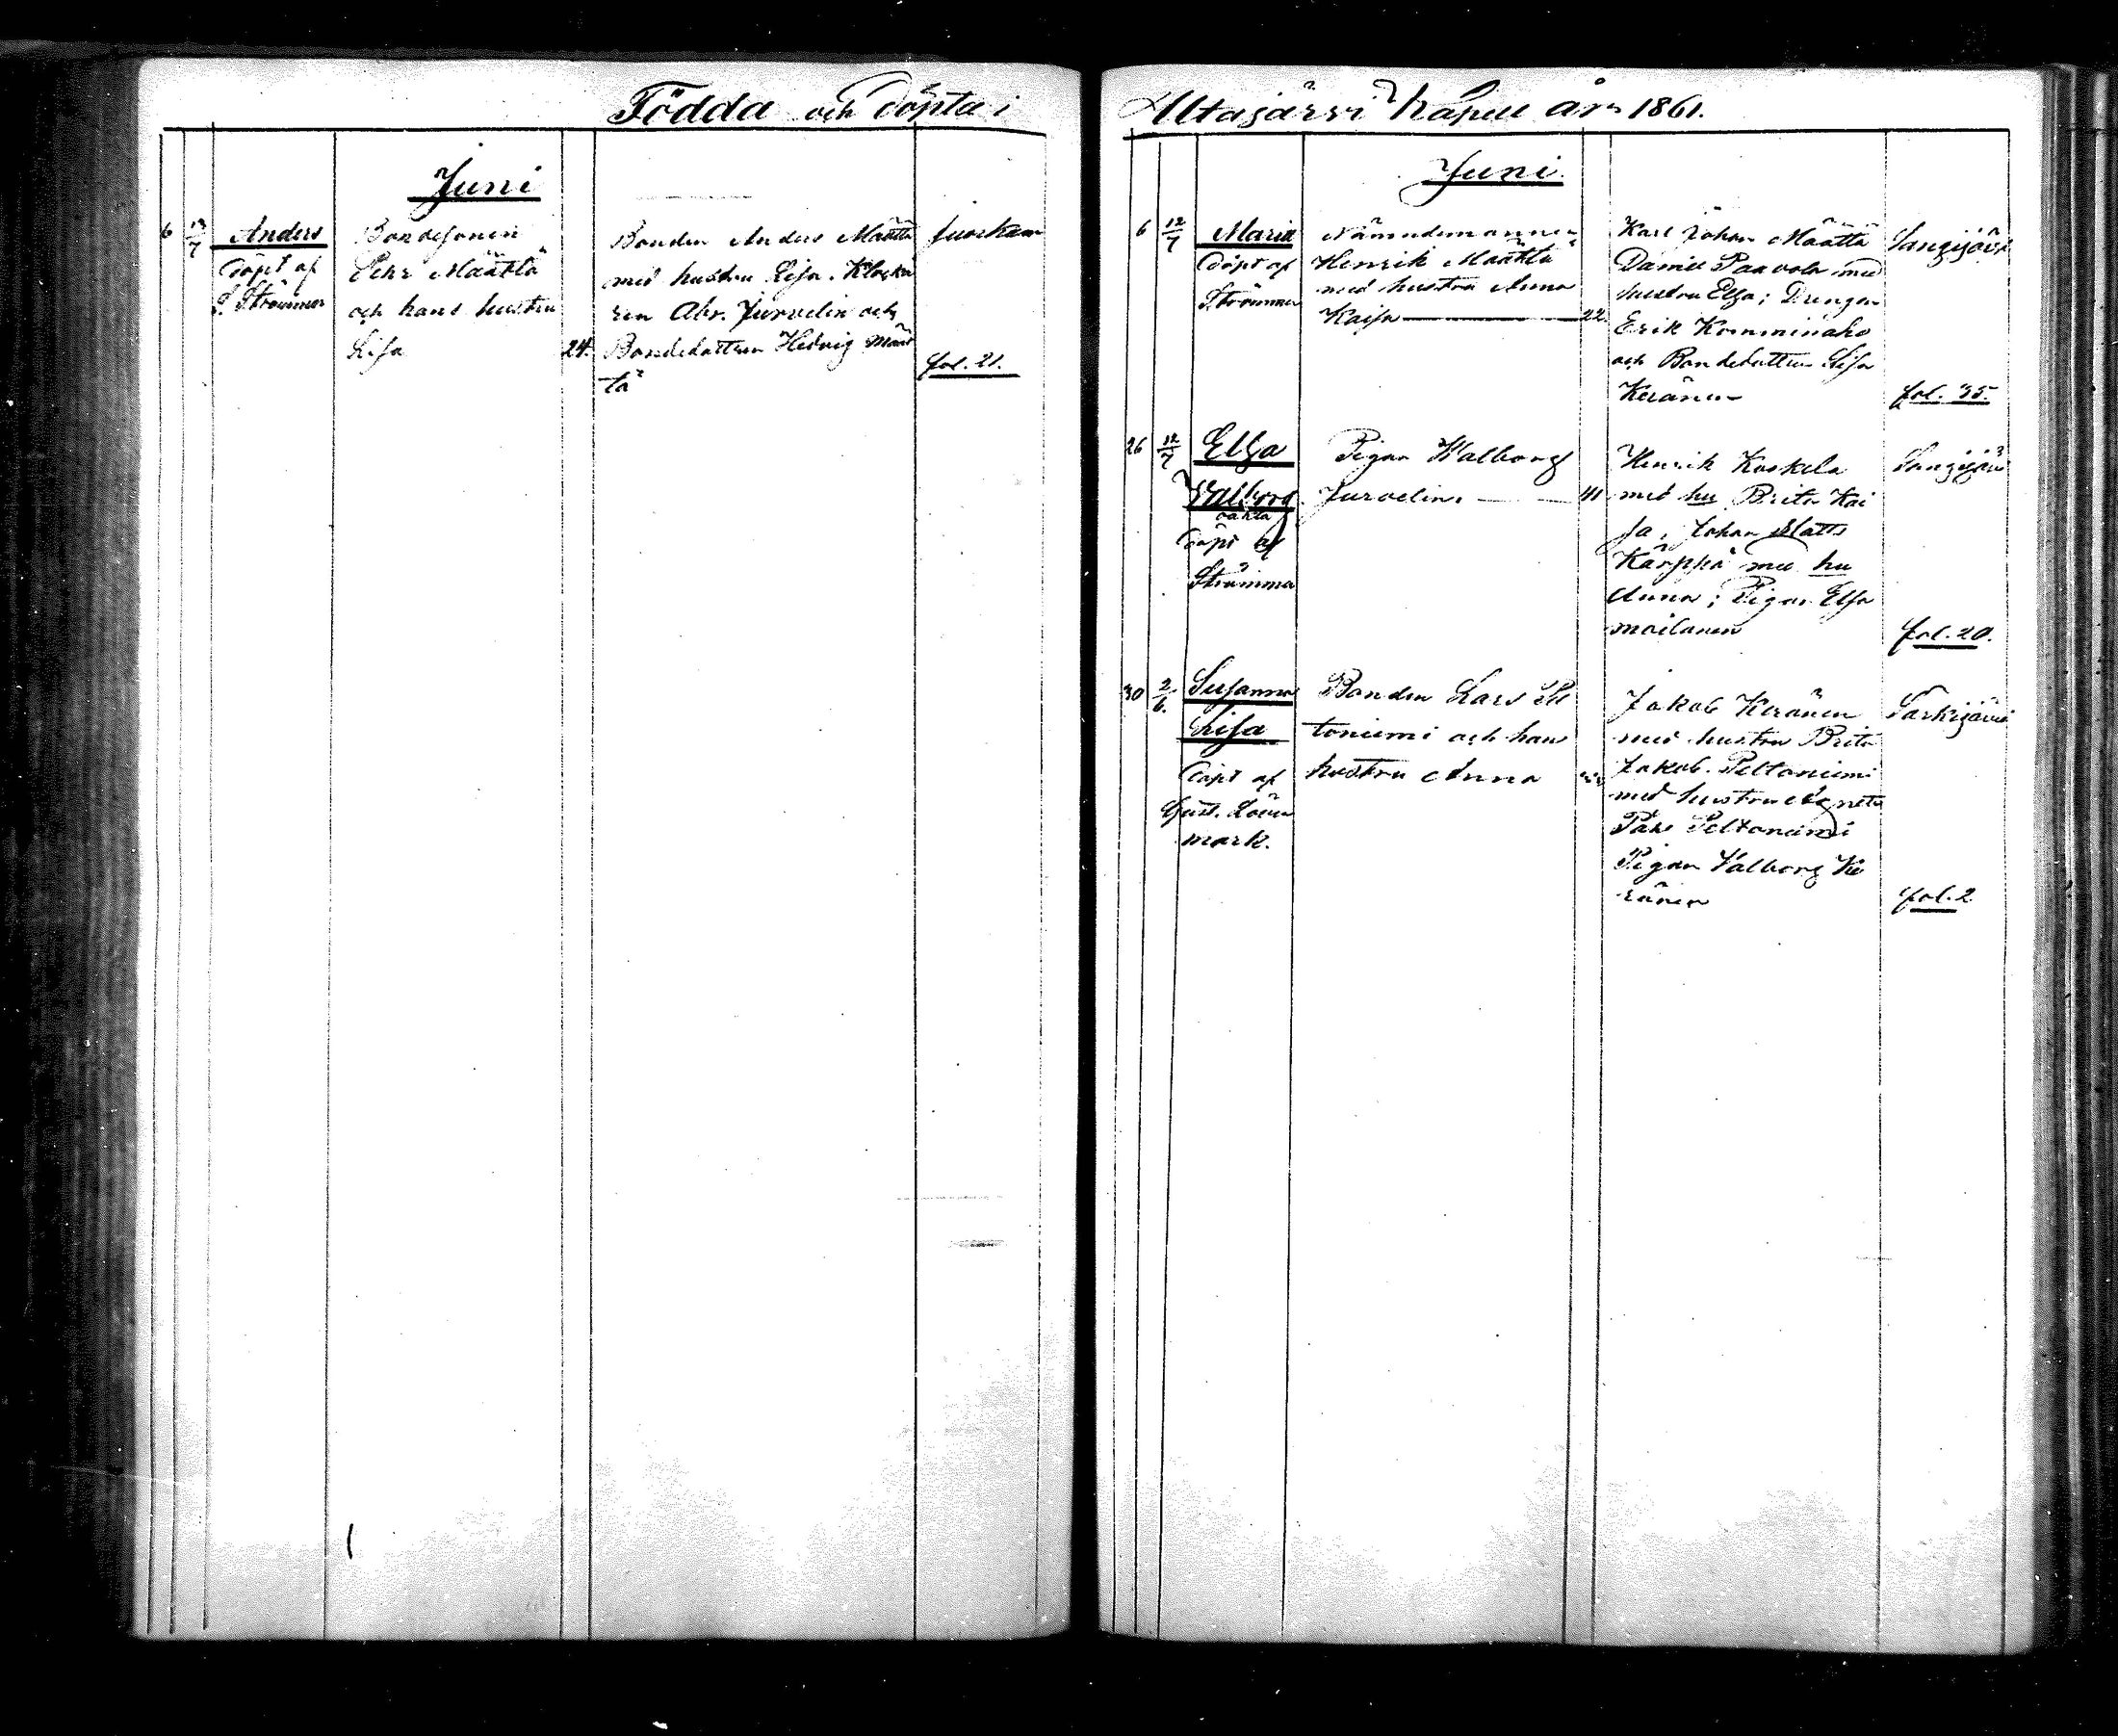 Födda och Döpta i
Juni
6 12/7 Anders Bondesonen Bonden Anders Määttä
Döpt af Pehr Määttä med hustru Lisa. Klocka
J. Strömmer och hans hustru ren Abr. Jurvelin och
Lisa 24. Bondedottren Hedvig Määt
tä fol. 21.
Altajärvi Kapell år 1861.
Juni.
6 12/7 Maria Nämndemannen Karl Johan Määttä Sangijärvi
Döpt af Henrik Määttä Daniel Paavola med
Strömmer med hustru Anna hustru Elsa; Drengen
Kaisa 22 Erik Komminaho
och Bondedottren Lisa
Keränen fol. 35.
26 12/7 Elsa Pigan Walborg Henrik Koskela Sangijärvi
Valborg Jurvelin. 41 med hu Brita Kai
oäkta sa; Johan Matts
Döpt af Kärppä med hu
Strömmer Anna; Pigan Elsa
Moilanen fol. 20.
30 2/6. Susanna Bonden Lars Pel Jakob Keränen Särkijärvi
Lisa toniemi och hans med hustru Brita
Döpt af hustru Anna Jakob Peltoniemi
Gust. Löwe med hustru Agneta
mark. Peltoniemi
Pigan Valborg Ke
ränen fol. 2